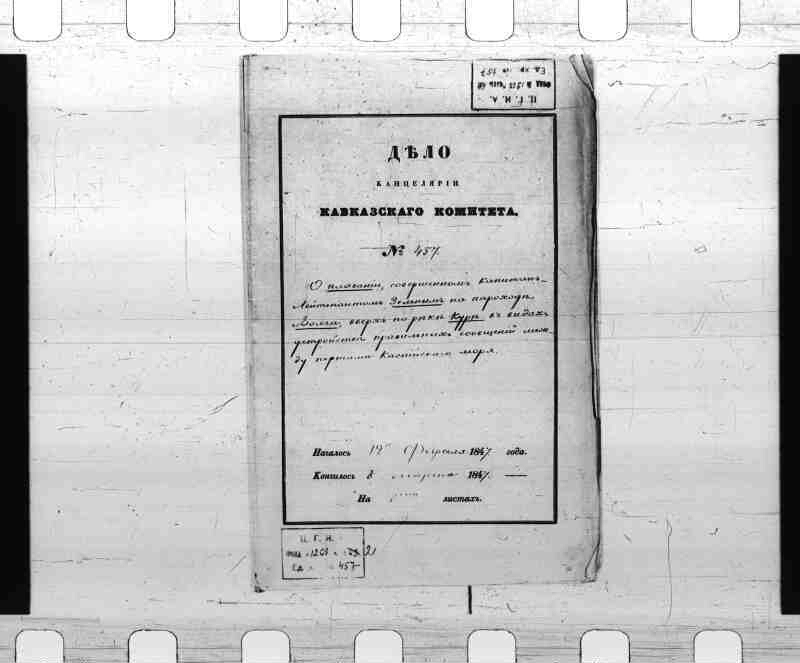 Ц.Г.И.А.
ДѢЛО
КАНЦЕЛЯРІИ
КАВКАЗСКАГО КОМИТЕТА.
№ 457
О плаваніи, совершенномъ Капитанъ-
Лейтенантомъ на пароходѣ
Волга, вверхъ по рѣкѣ Курѣ въ видахъ
устройства правильныхъ сообщеній меж-
ду портами Каспійскаго моря.
Началось 12 Февраля 1847 года.
Кончилось 8 марта 1847.
На листахъ.
Ц.Г.И.
457